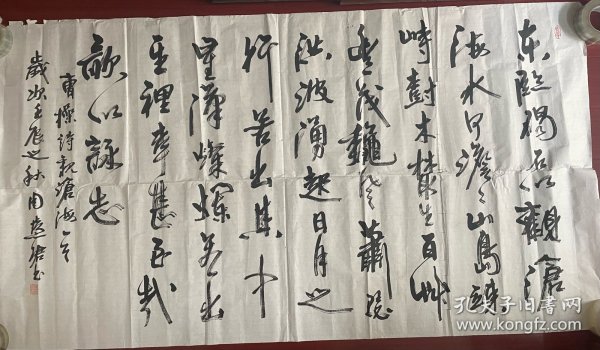 東臨碣石觀滄
海水何澹澹山島竦
峙樹木叢生百艸
豐茂秋風蕭瑟
洪波湧起日月之
行若出其中
星漢燦爛若出
其裡幸甚至哉
歌以詠志
曹操詩觀滄海一首
歲次壬辰之秋周
孔夫子旧书网
www.kongfz.com